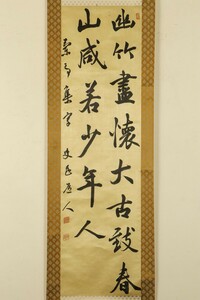 幽竹盡懷大古致春
山咸若少年人
集字 人